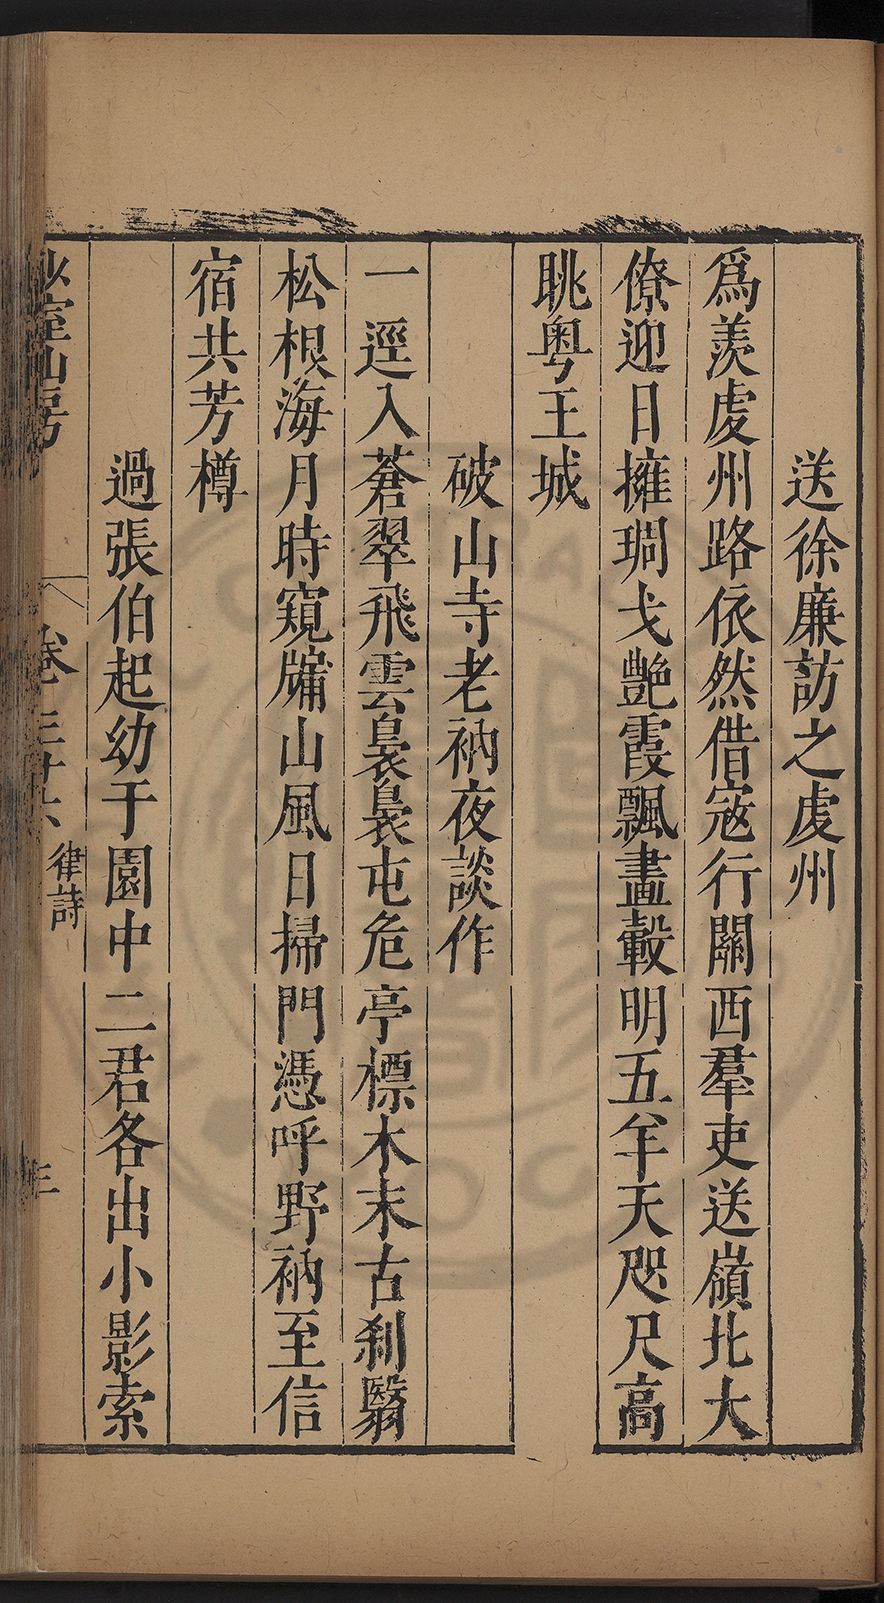 送徐廉訪之虔州
爲羨虔州路依然借寇行關西羣吏送嶺北大
僚迎日擁琱戈艷霞飄畫轂明五羊天咫尺高
眺粵王城
破山寺老衲夜談作
一逕入蒼翠飛雲裊裊屯危亭標木末古刹翳
松根海月時窺牖山風日掃門憑呼野衲至信
宿共芳樽
過張伯起幼于園中二君各出小影索
少室山房
卷三十六
律詩
三